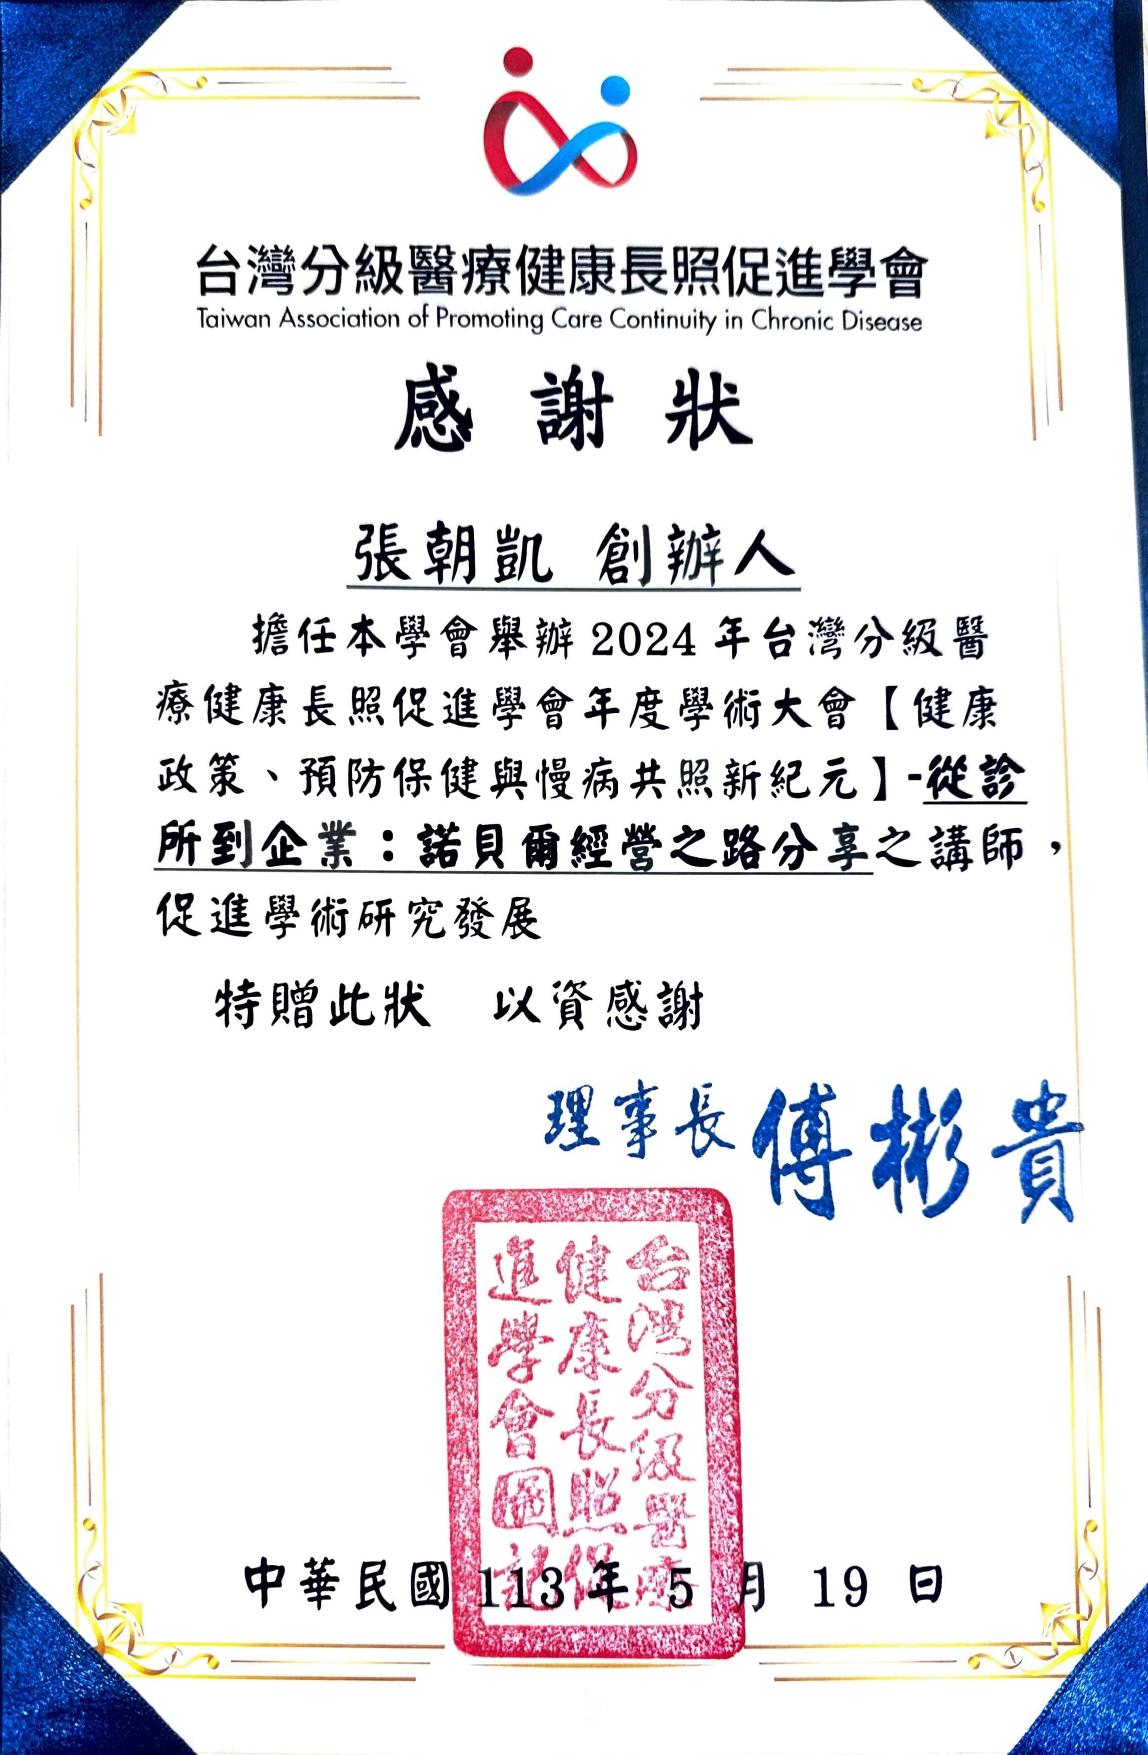 台灣分級醫療健康長照促進學會
Taiwan Association of Promoting Care Continuity in Chronic Disease
感謝狀
張朝凱 創辦人
擔任本學會舉辦2024年台灣分級醫
療健康長照促進學會年度學術大會【健康
政策、預防保健與慢病共照新紀元】-從診
所到企業：諾貝爾經營之路分享之講師，
促進學術研究發展
特贈此狀 以資感謝
理事長 傅彬貴
台灣分級醫療
健康長照保
進學會圖記
中華民國113年5月19日